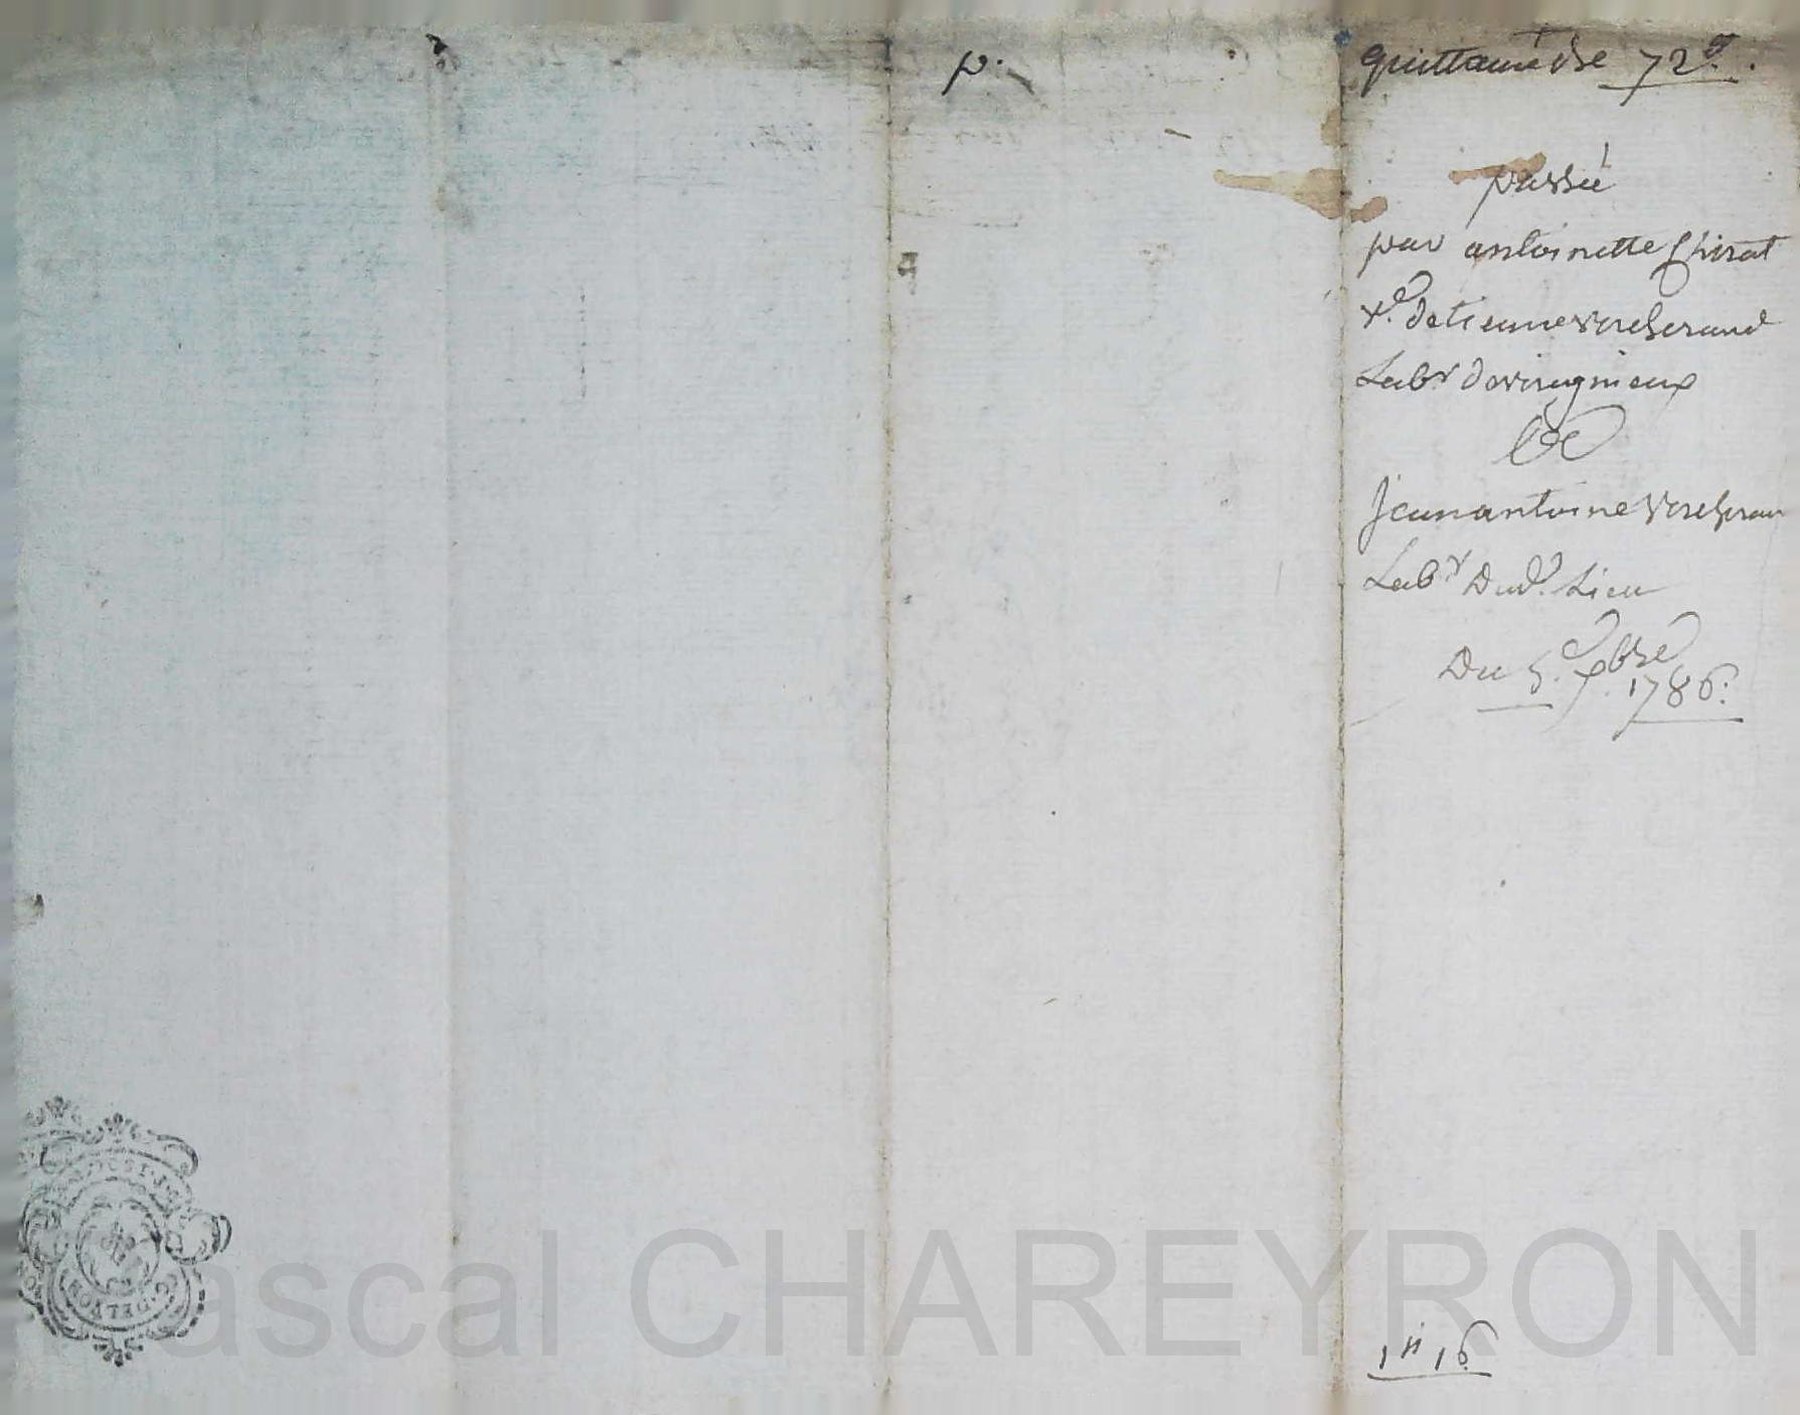 p.
quittance de 72#.
passée
par antoinette Chirat
ve. detienne Vercherand
Labr. deviragnieux
a
Jean antoine Vercheran
Labr Dud. Lieu
Du 5e. xbre
1786.
1# 16
G. DE LYON
Pascal CHAREYRON